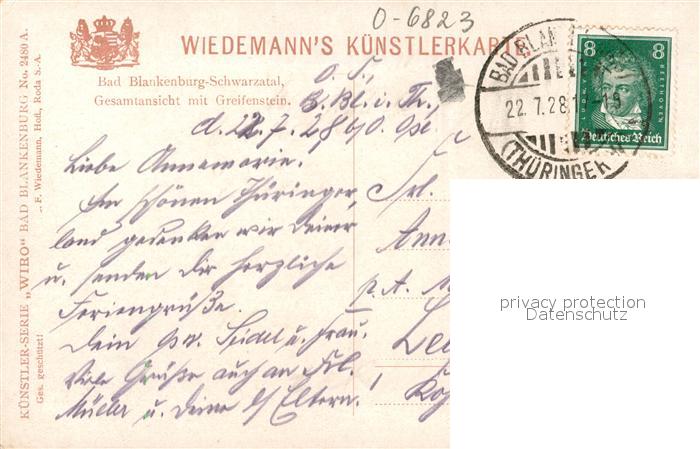 O-6823
WIEDEMANN'S KÜNSTLERKARTE
Bad Blankenburg-Schwarzatal,
Gesamtansicht mit Greifenstein.
B. Bl. i. Th.,
d. 22.7.28
Liebe Annemarie.
Im schönen Thüringer
land gedenken wir Deiner
u. senden dir herzliche
Feriengrüße.
Dein Seidel u. Frau.
Viele Grüße auch an Frl.
Müller u. Deine Eltern.
Frl.
Ann
p. A.
KÜNSTLER-SERIE „WIRO" BAD BLANKENBURG No. 2480 A.
F. Wiedemann, Hofl., Roda S.-A.
Ges. geschützt!
BAD BLAN
22.7.28
(THÜRINGER
8 8
LUDW. VAN BEETHOVEN
Deutsches Reich
privacy protection
Datenschutz